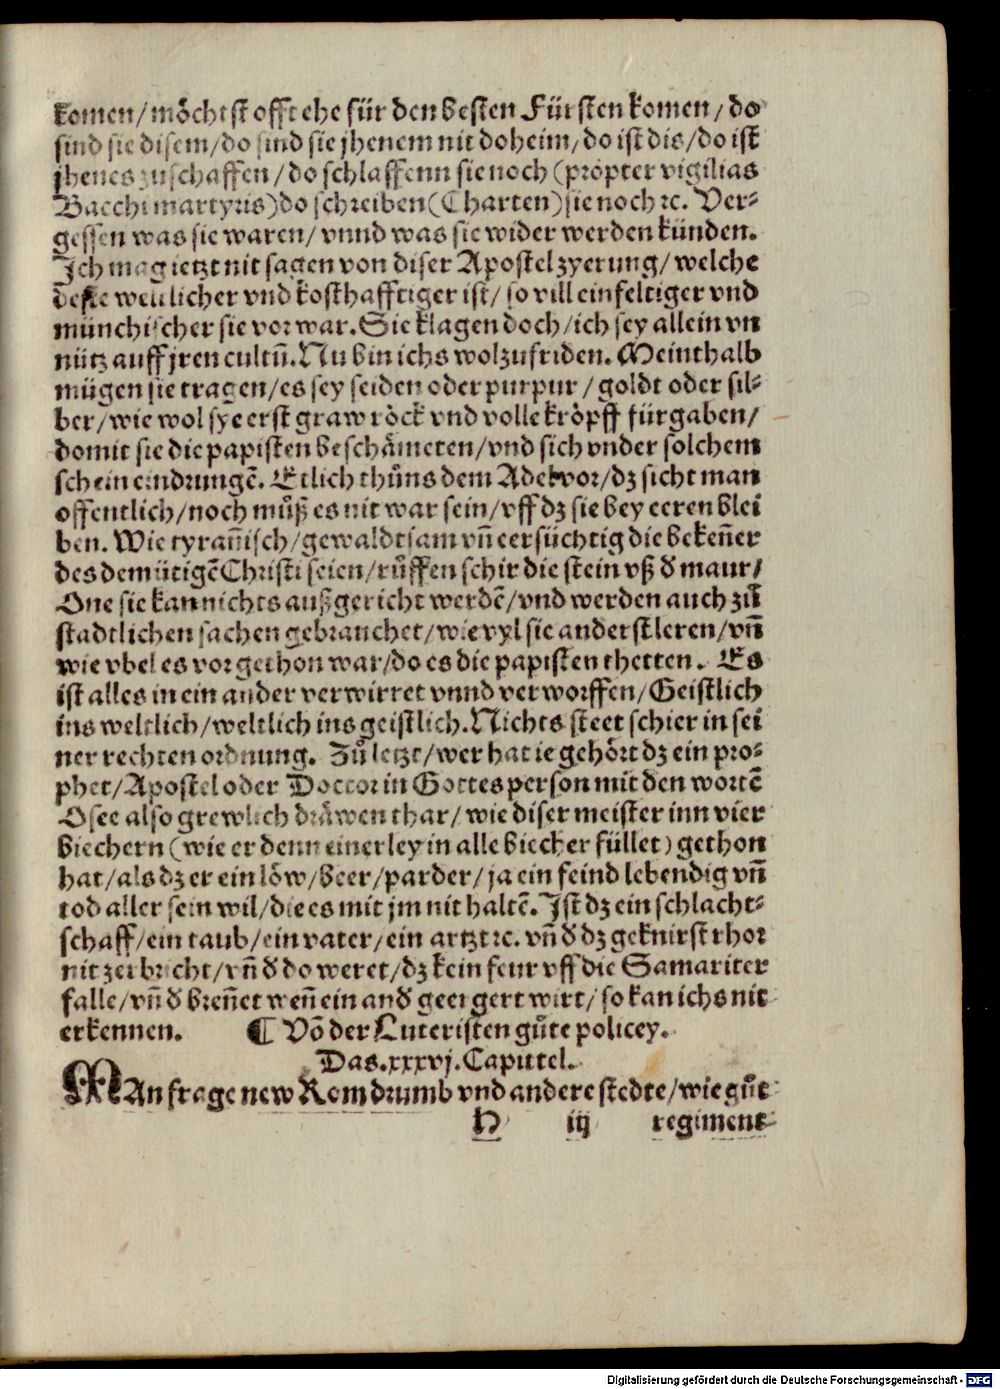 komen/ möchtst offt ehe für den besten Fürsten komen/ do
sind sie disem/ do sind sie jhenem nit doheim/ do ist dis/ do ist
jhenes zuschaffen/ do schlaffenn sie noch (propter vigilias
Bacchi martyris) do schreiben (Charten) sie noch ꝛc. Ver⸗
gessen was sie waren/ vnnd was sie wider werden künden.
Ich mag ietzt nit sagen von diser Apostelzyerung/ welche
deste weulicher vnd kosthafftiger ist/ so vill einfeltiger vnd
münchischer sie vor war. Sie klagen doch/ ich sey allein vn
nütz auff jren cultū. Nu bin ichs wolzufriden. Meinthalb
mügen sie tragen/ es sey seiden oder purpur/ goldt oder sil⸗
ber/ wie wol sye erst graw röck vnd volle kröpff fürgaben/
domit sie die papisten beschämeten/ vnd sich vnder solchem
schein eindrungē. Etlich thůns dem Adel vor/ dz sicht man
offentlich/ noch můß es nit war sein/ vff dz sie bey eeren blei
ben. Wie tyrañisch/ gewaldtsam vñ eersüchtig die bekeñer
des demütigē Christi seien/ růffen schir die stein vß d̓ maur/
One sie kan nichts außgericht werdē/ vnd werden auch zů
stadtlichen sachen gebrauchet/ wie vyl sie anderst leren/ vñ
wie vbel es vor gethon war/ do es die papisten thetten. Es
ist alles in ein ander verwirret vnnd verworffen/ Geistlich
ins weltlich/ weltlich ins geistlich. Nichts steet schier in sei
ner rechten ordnung. Zů letzt/ wer hat ie gehört dz ein pro⸗
phet/ Apostel oder Doctor in Gottes person mit den wortē
Osee also grewlich dräwen thar/ wie diser meister inn vier
biechern (wie er denn einerley in alle biecher füllet) gethon
hat/ als dz er ein löw/ beer/ parder/ ja ein feind lebendig vñ
tod aller sein wil/ die es mit jm nit haltē. Ist dz ein schlacht⸗
schaff/ ein taub/ ein vater/ ein artzt ꝛc. vñ d̓ dz geknirst rhor
nit zerbricht/ vñ d̓ do weret/ dz kein feur vff die Samariter
falle/ vñ d̓ breñet weñ ein and̓ geergert wirt/ so kan ichs nit
erkennen. ¶ Vō der Luteristen gůte policey.
Das .xxxvj. Capittel.
MAn frage new Rom drumb vnd andere stedte/ wie gůt
H iij regiment
Digitalisierung gefördert durch die Deutsche Forschungsgemeinschaft - DFG